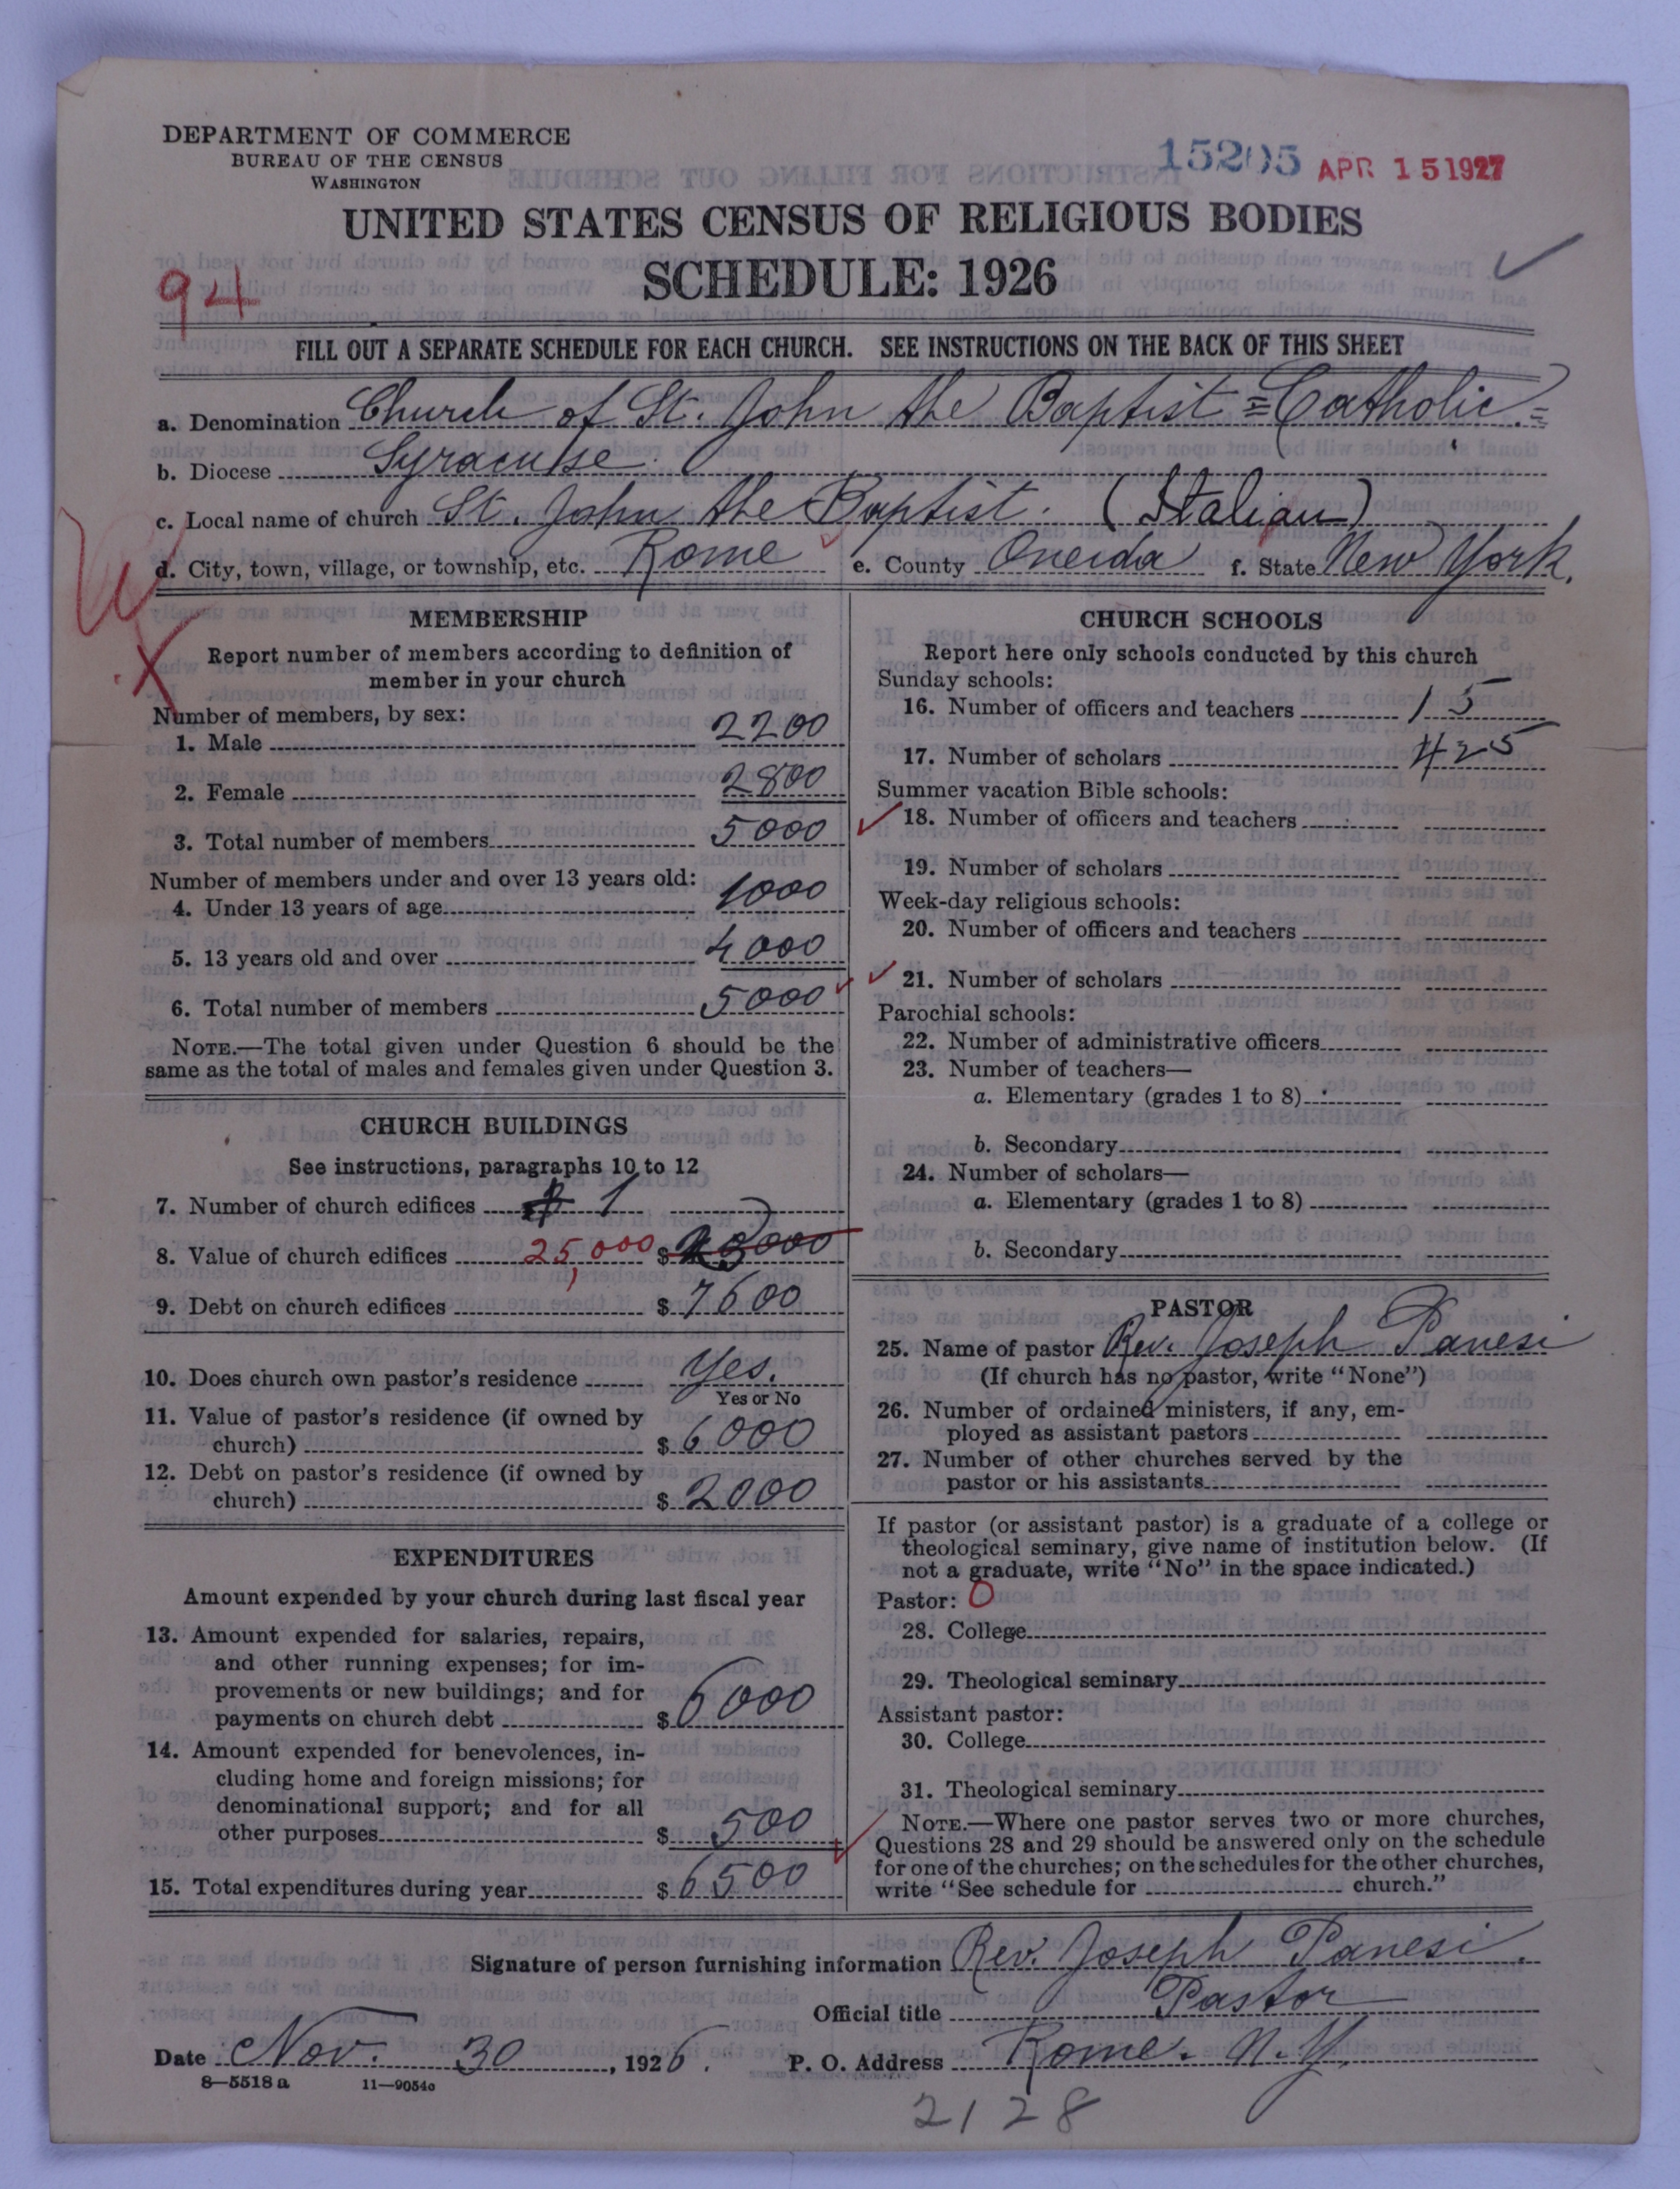 DEPARTMENT OF COMMERCE
BUREAU OF THE CENSUS
WASHINGTON
15205 APR 15 1927
UNITED STATES CENSUS OF RELIGIOUS BODIES
SCHEDULE: 1926
94
FILL OUT A SEPARATE SCHEDULE FOR EACH CHURCH. SEE INSTRUCTIONS ON THE BACK OF THIS SHEET
a. Denomination Church of St. John the Baptist = Catholic. =
b. Diocese Syracuse
c. Local name of church St. John the Baptist. (Italian)
d. City, town, village, or township, etc. Rome e. County Oneida f. State New York.
MEMBERSHIP
Report number of members according to definition of
member in your church
Number of members, by sex:
1. Male 2200
2. Female 2800
3. Total number of members 5000
Number of members under and over 13 years old:
4. Under 13 years of age 1000
5. 13 years old and over 4000
6. Total number of members 5000
NOTE.—The total given under Question 6 should be the
same as the total of males and females given under Question 3.
CHURCH BUILDINGS
See instructions, paragraphs 10 to 12
7. Number of church edifices 1
8. Value of church edifices 25,000 $
9. Debt on church edifices $ 7600
10. Does church own pastor's residence Yes.
Yes or No
11. Value of pastor's residence (if owned by
church) $ 6000
12. Debt on pastor's residence (if owned by
church) $ 2000
EXPENDITURES
Amount expended by your church during last fiscal year
13. Amount expended for salaries, repairs,
and other running expenses; for im-
provements or new buildings; and for
payments on church debt $ 6000
14. Amount expended for benevolences, in-
cluding home and foreign missions; for
denominational support; and for all
other purposes $ 500
15. Total expenditures during year $ 6500
CHURCH SCHOOLS
Report here only schools conducted by this church
Sunday schools:
16. Number of officers and teachers 15
17. Number of scholars 425
Summer vacation Bible schools:
18. Number of officers and teachers
19. Number of scholars
Week-day religious schools:
20. Number of officers and teachers
21. Number of scholars
Parochial schools:
22. Number of administrative officers
23. Number of teachers—
a. Elementary (grades 1 to 8)
b. Secondary
24. Number of scholars—
a. Elementary (grades 1 to 8)
b. Secondary
PASTOR
25. Name of pastor Rev. Joseph Panesi
(If church has no pastor, write "None")
26. Number of ordained ministers, if any, em-
ployed as assistant pastors
27. Number of other churches served by the
pastor or his assistants
If pastor (or assistant pastor) is a graduate of a college or
theological seminary, give name of institution below. (If
not a graduate, write "No" in the space indicated.)
Pastor: 0
28. College
29. Theological seminary
Assistant pastor:
30. College
31. Theological seminary
NOTE.—Where one pastor serves two or more churches,
Questions 28 and 29 should be answered only on the schedule
for one of the churches; on the schedules for the other churches,
write "See schedule for church."
Signature of person furnishing information Rev. Joseph Panesi.
Official title Pastor
Date Nov. 30, 1926. P. O. Address Rome. N.Y.
8—5518 a 11—9054c
2128